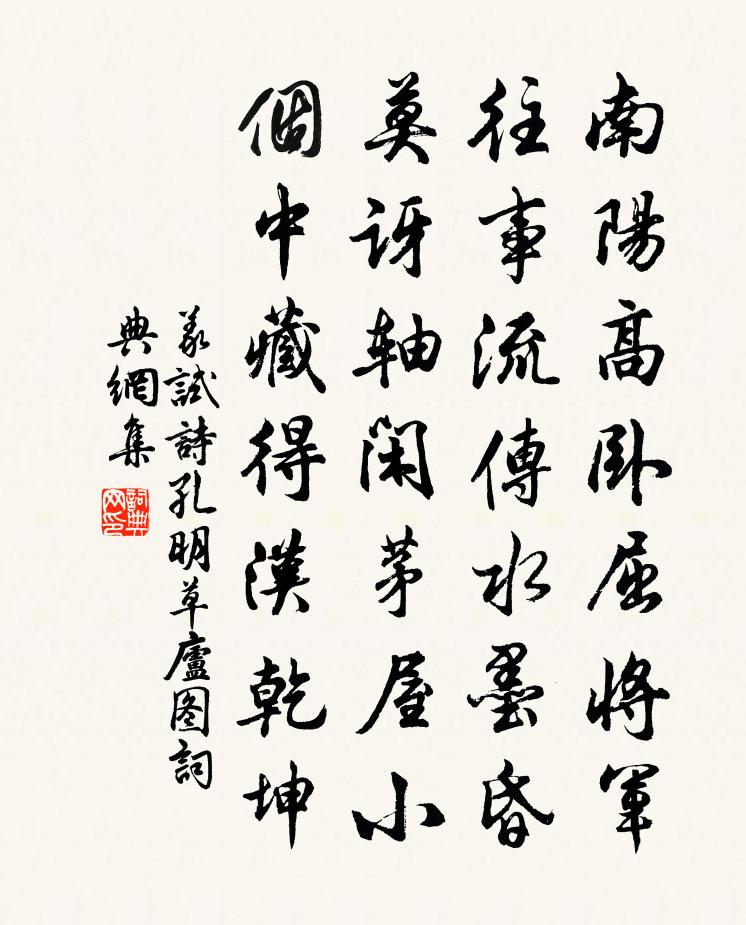 南陽高卧屈將軍
往事流傳水墨昏
莫訝軸閑茅屋小
個中藏得漢乾坤
羕試詩孔明草廬图詞
典網集
詞典网印